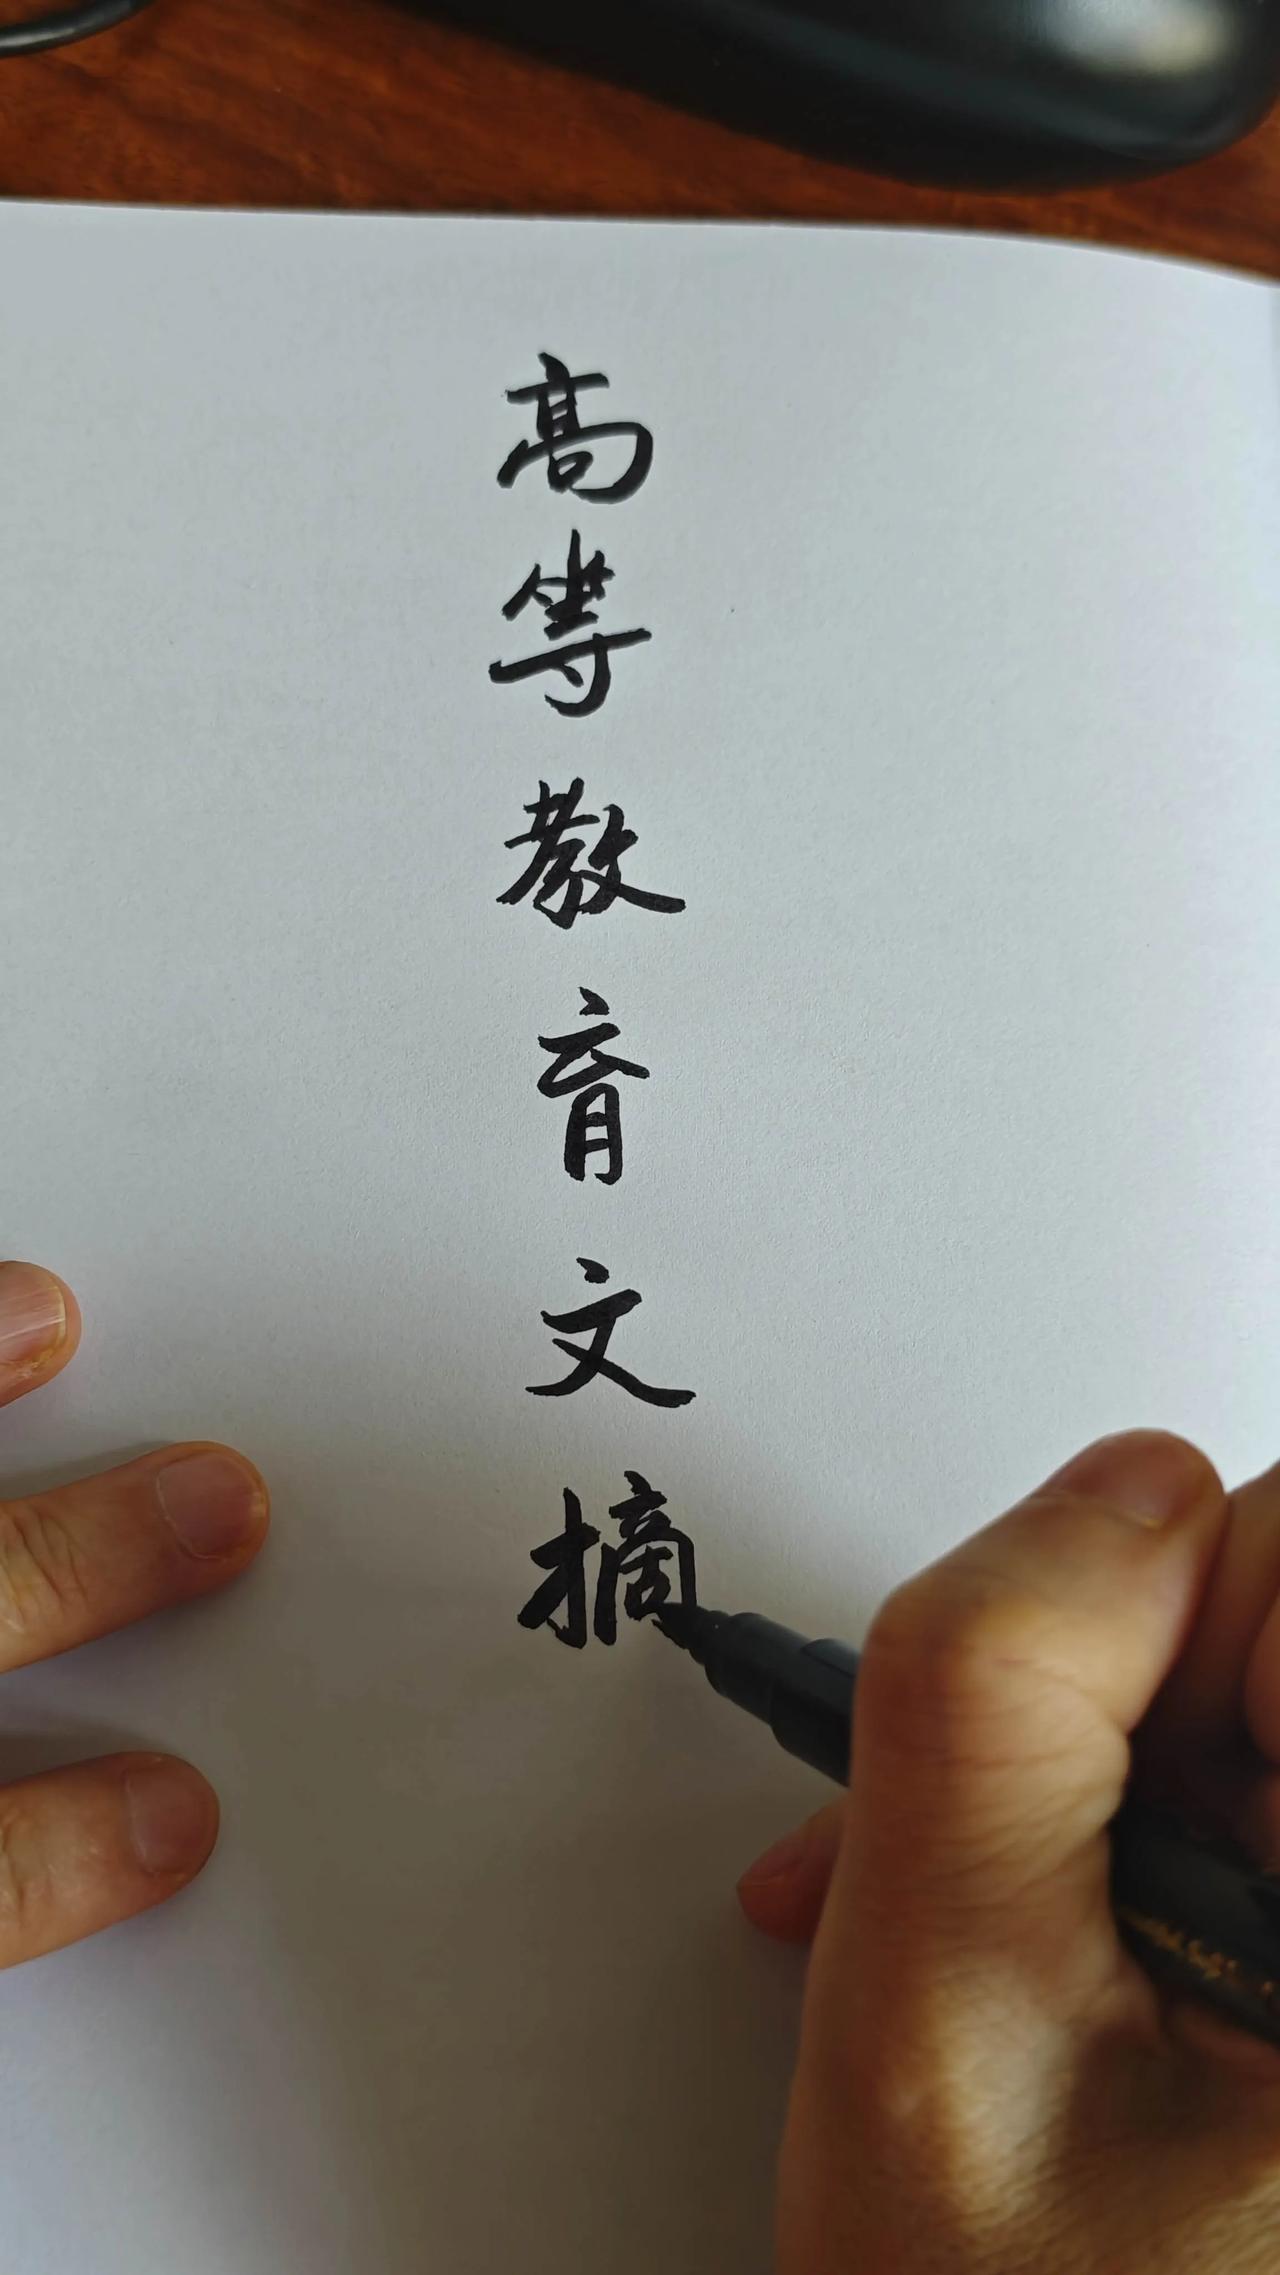 高等教育文摘